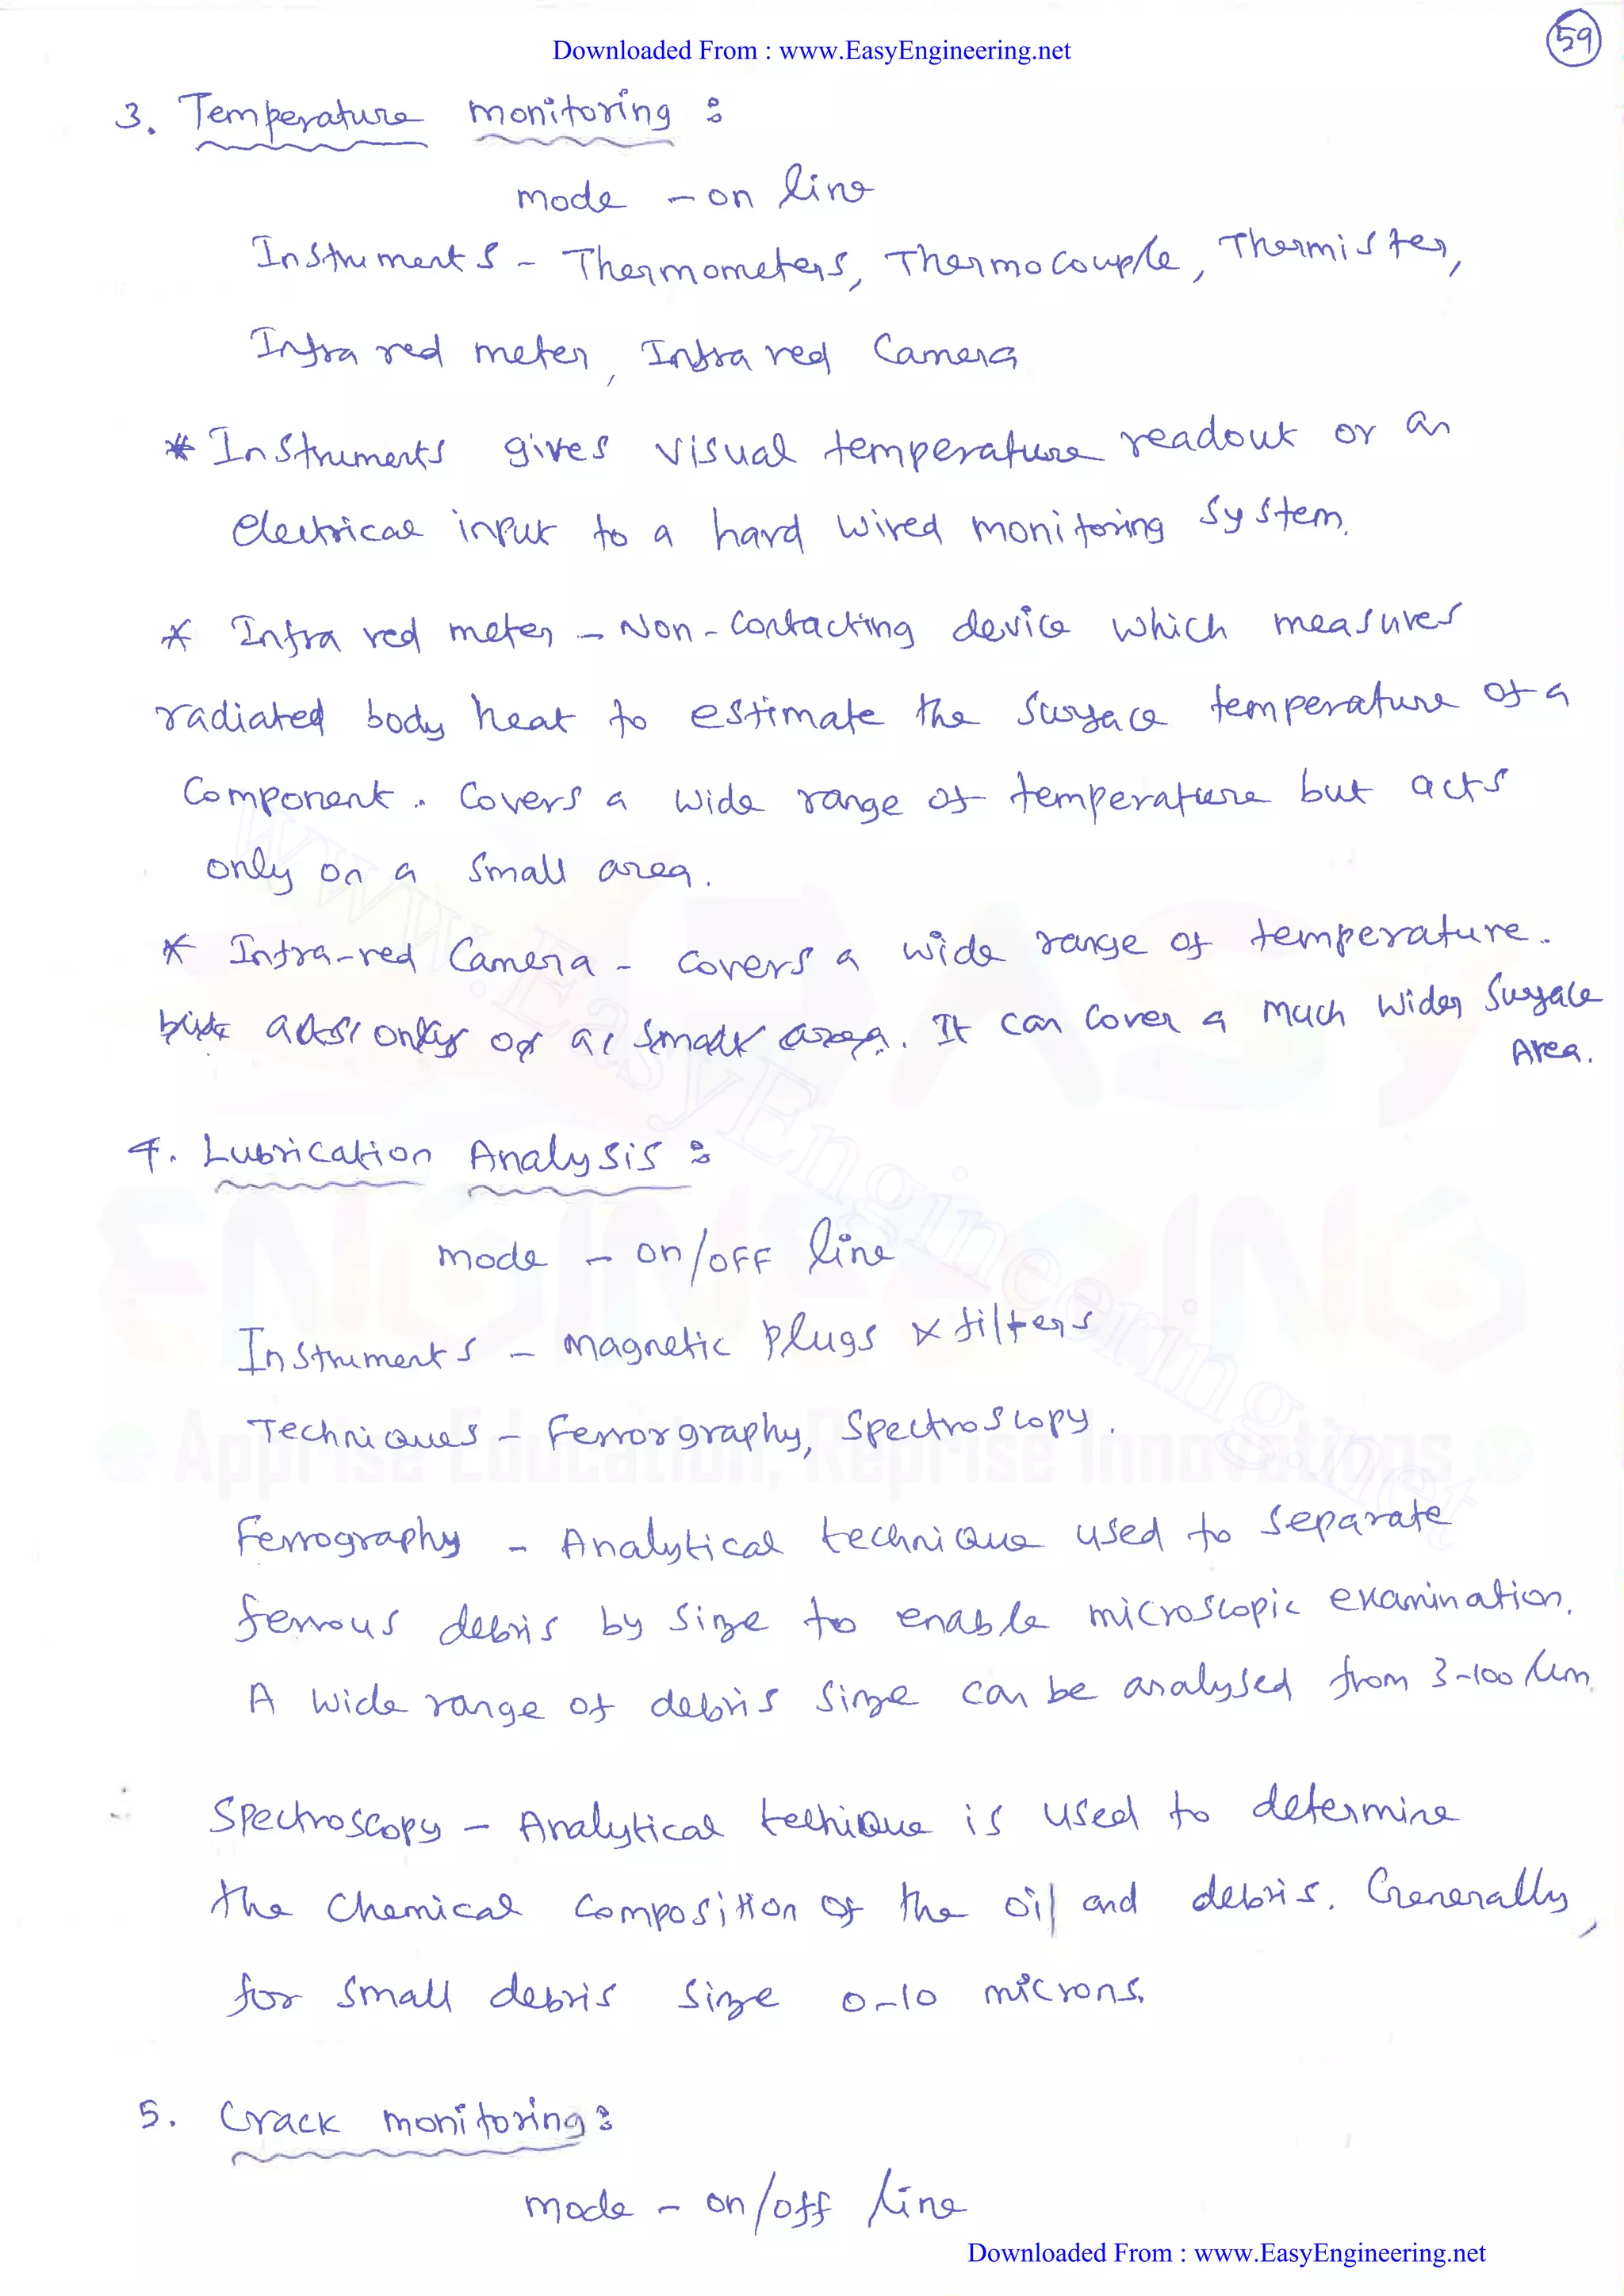 Downloaded From : www.EasyEngineering.net
59
3. Temperature monitoring :
mode - on line
Instruments - Thermometers, Thermocouple, Thermister,
Infra red meter, Infra red Camera
* Instruments gives visual temperature readout or an
electrical input to a hard wired monitoring system.
* Infra red meter - Non-Contacting device which measures
radiated body heat to estimate the surface temperature of a
Component. Covers a wide range of temperature but acts
only on a small area.
* Infra-red Camera - covers a wide range of temperature.
but acts only on a small area. It can cover a much wider surface
Area.
4. Lubrication Analysis :
mode - on/off line
Instruments - magnetic plugs & filters
Techniques - Ferrorgraphy, Spectroscopy.
Ferrography - Analytical technique used to separate
ferrous debris by size to enable microscopic examination.
A wide range of debris size can be analysed from 3-100 µm.
Spectroscopy - Analytical tethique is used to determine
the chemical composition of the oil and debris. Generally,
for small debris size 0-10 microns.
5. Crack monitoring :
mode - on/off line
www.EasyEngineering.net
EASY
ENGINEERING
Apprise Education, Reprise Innovations
Downloaded From : www.EasyEngineering.net